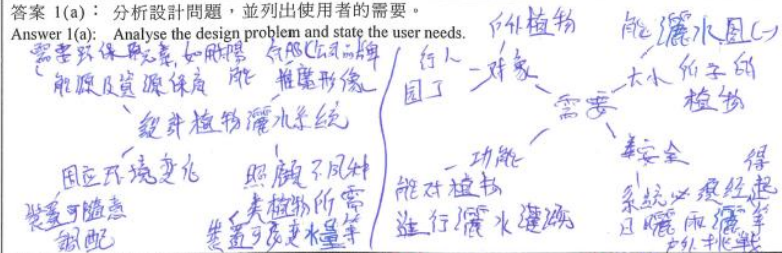 答案 1(a)： 分析設計問題，並列出使用者的需要。
Answer 1(a): Analyse the design problem and state the user needs.
需要環保元素,如
能源及資源保育
能推廣形像
設計植物灑水系統
因应环境变化
裝置可隨意
調配
照顧不同种
类植物所需
裝置可改变水量等
户外植物
行人
园丁
对象
需要
能灑水
大小
植物
功能
能对植物
進行灑水灌溉
安全
系統必須经得起
日曬雨灑等
户外挑戰